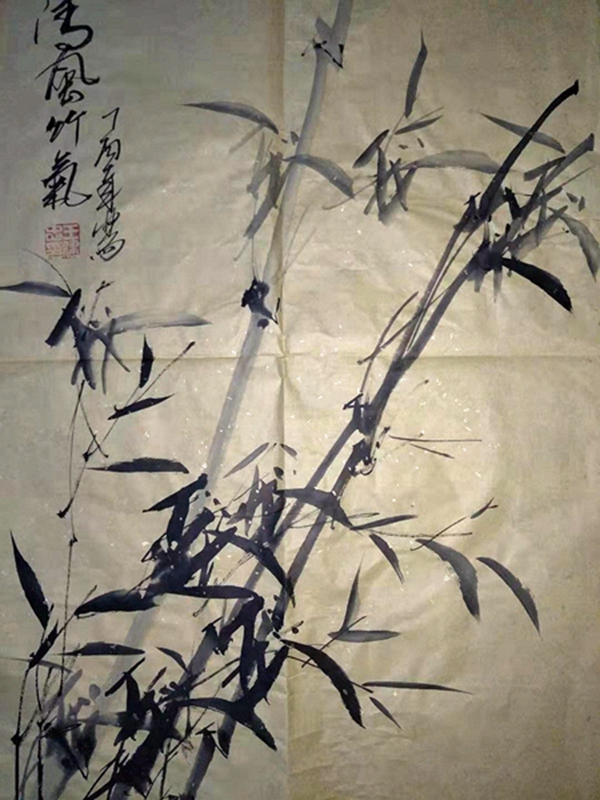 清風竹氣
丁酉年